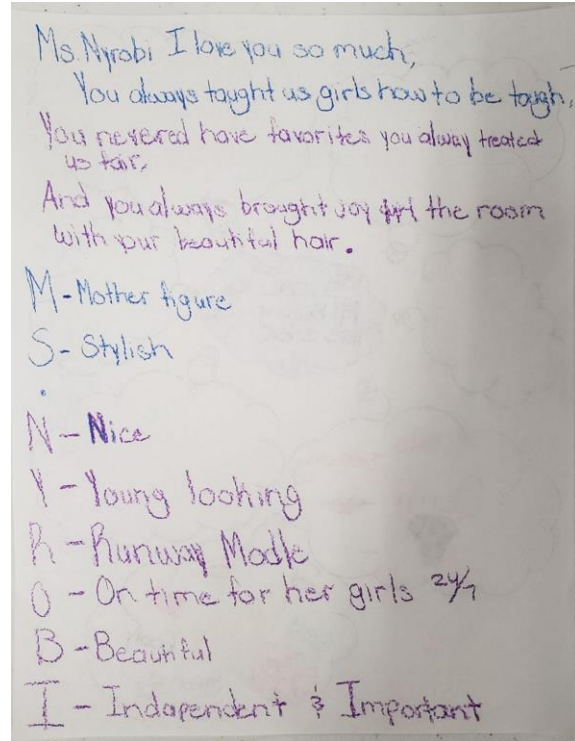 Ms. Nyrobi I love you so much,
You always taught us girls how to be tough,
You nevered have favorites you alway treated
us fair,
And you always brought joy the room
with your beautiful hair.
M - Mother figure
S - Stylish
.
N - Nice
Y - Young looking
R - Runway Modle
O - On time for her girls 24/7
B - Beautiful
I - Indapendent & Important